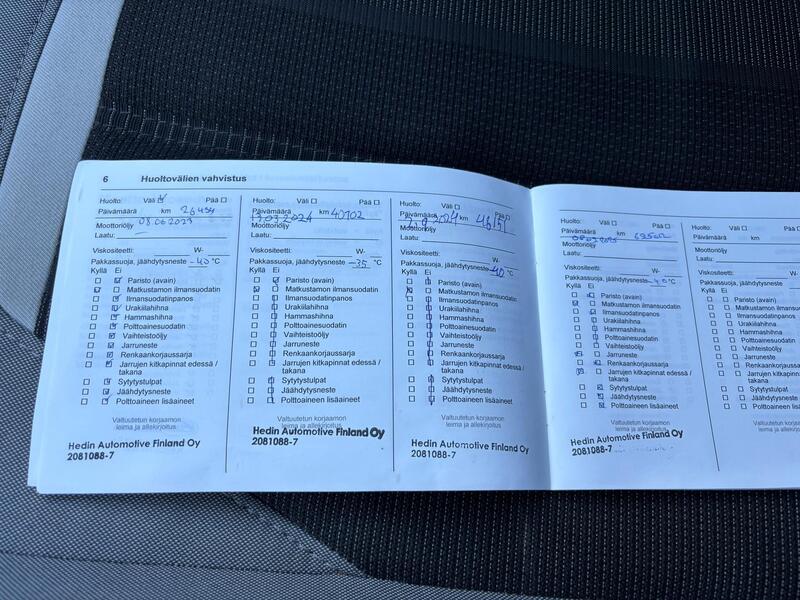 6 Huoltovälien vahvistus
Huolto: Väli ☑ Pää ☐
Päivämäärä km 26454
08.06.2023
Moottoriöljy
Laatu:
Viskositeetti: W-
Pakkassuoja, jäähdytysneste -40 °C
Kyllä Ei
Paristo (avain)
Matkustamon ilmansuodatin
Ilmansuodatinpanos
Urakiilahihna
Hammashihna
Polttoainesuodatin
Vaihteistoöljy
Jarruneste
Renkaankorjaussarja
Jarrujen kitkapinnat edessä /
takana
Sytytystulpat
Jäähdytysneste
Polttoaineen lisäaineet
Valtuutetun korjaamon
leima ja allekirjoitus
Hedin Automotive Finland Oy
2081088-7
Huolto: Väli ☐ Pää ☐
Päivämäärä km 40102
13.03.2024
Moottoriöljy
Laatu:
Viskositeetti: W-
Pakkassuoja, jäähdytysneste -35 °C
Kyllä Ei
Paristo (avain)
Matkustamon ilmansuodatin
Ilmansuodatinpanos
Urakiilahihna
Hammashihna
Polttoainesuodatin
Vaihteistoöljy
Jarruneste
Renkaankorjaussarja
Jarrujen kitkapinnat edessä /
takana
Sytytystulpat
Jäähdytysneste
Polttoaineen lisäaineet
Valtuutetun korjaamon
leima ja allekirjoitus
Hedin Automotive Finland Oy
2081088-7
Huolto: Väli ☐ Pää ☐
Päivämäärä km
Moottoriöljy
Laatu:
Viskositeetti: W-
Pakkassuoja, jäähdytysneste -40 °C
Kyllä Ei
Paristo (avain)
Matkustamon ilmansuodatin
Ilmansuodatinpanos
Urakiilahihna
Hammashihna
Polttoainesuodatin
Vaihteistoöljy
Jarruneste
Renkaankorjaussarja
Jarrujen kitkapinnat edessä /
takana
Sytytystulpat
Jäähdytysneste
Polttoaineen lisäaineet
Valtuutetun korjaamon
leima ja allekirjoitus
Hedin Automotive Finland Oy
2081088-7
Huolto: Väli ☐ Pää ☐
Päivämäärä km
Moottoriöljy
Laatu:
Viskositeetti: W-
Pakkassuoja, jäähdytysneste °C
Kyllä Ei
Paristo (avain)
Matkustamon ilmansuodatin
Ilmansuodatinpanos
Urakiilahihna
Hammashihna
Polttoainesuodatin
Vaihteistoöljy
Jarruneste
Renkaankorjaussarja
Jarrujen kitkapinnat edessä /
takana
Sytytystulpat
Jäähdytysneste
Polttoaineen lisäaineet
Valtuutetun korjaamon
leima ja allekirjoitus
Hedin Automotive Finland Oy
2081088-7
Huolto: Väli ☐
Päivämäärä km
Moottoriöljy
Laatu:
Viskositeetti:
Pakkassuoja, jäähdytysneste
Kyllä Ei
Paristo (avain)
Matkustamon ilmansuodatin
Ilmansuodatinpanos
Urakiilahihna
Hammashihna
Polttoainesuodatin
Vaihteistoöljy
Jarruneste
Renkaankorjaussarja
Jarrujen kitkapinnat
takana
Sytytystulpat
Jäähdytysneste
Polttoaineen lisäaineet
Valtuutetun korjaamon
leima ja allekirjoitus